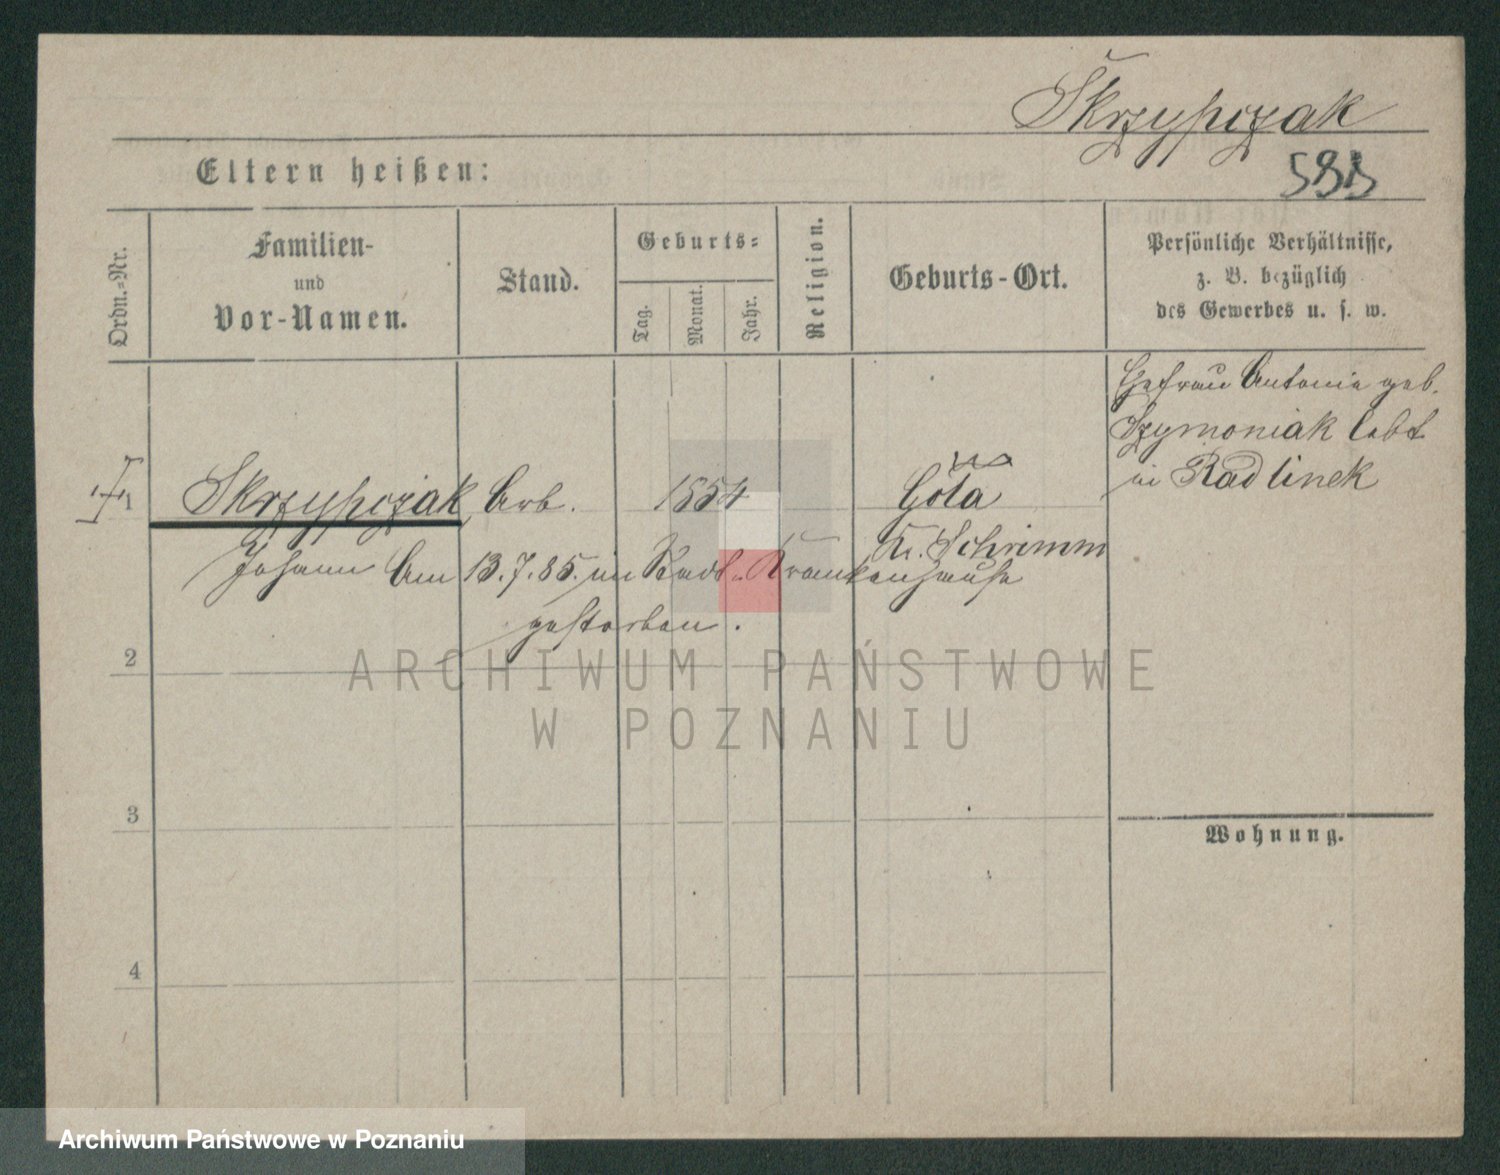 Skrzypczak
593
Eltern heißen:
Ordn.-Nr.
Familien-
und
Vor-Namen.
Stand.
Geburts-
Tag.
Monat.
Jahr.
Religion.
Geburts-Ort.
Persönliche Verhältnisse,
z. B. bezüglich
des Gewerbes u. s. w.
Ehefrau Antonie geb.
Szymoniak lebt
in Radlinek
1
Skrzypczak Arb. 1854 Góra
Kr. Schrimm
Johann Am 13.7.85. im Stadt-Krankenhause
gestorben.
2
ARCHIWUM PAŃSTWOWE
W POZNANIU
3
Wohnung.
4
Archiwum Państwowe w Poznaniu